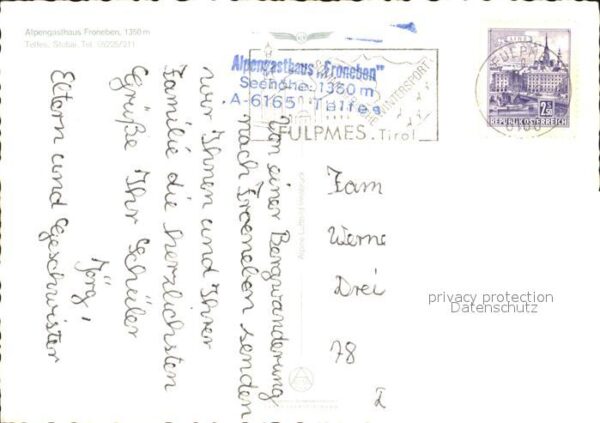 Alpengasthaus Froneben, 1350 m
Telfes, Stubai, Tel. 05225/211
Alpengasthaus „Froneben"
Seehöhe: 1350 m
A-6165 Telfes
WINTERSPORT
FULPMES. Tirol
FULPM
2.50
S
REPUBLIK ÖSTERREICH
Von einer Bergwanderung
nach Froeneben senden
wir Ihnen und Ihrer
Familie die herzlichsten
Grüße Ihr Schüler
Jörg,
Eltern und Geschwister
Alpine Luftbild Innsbruck
Fam
Werne
Drei
78
I
privacy protection
Datenschutz